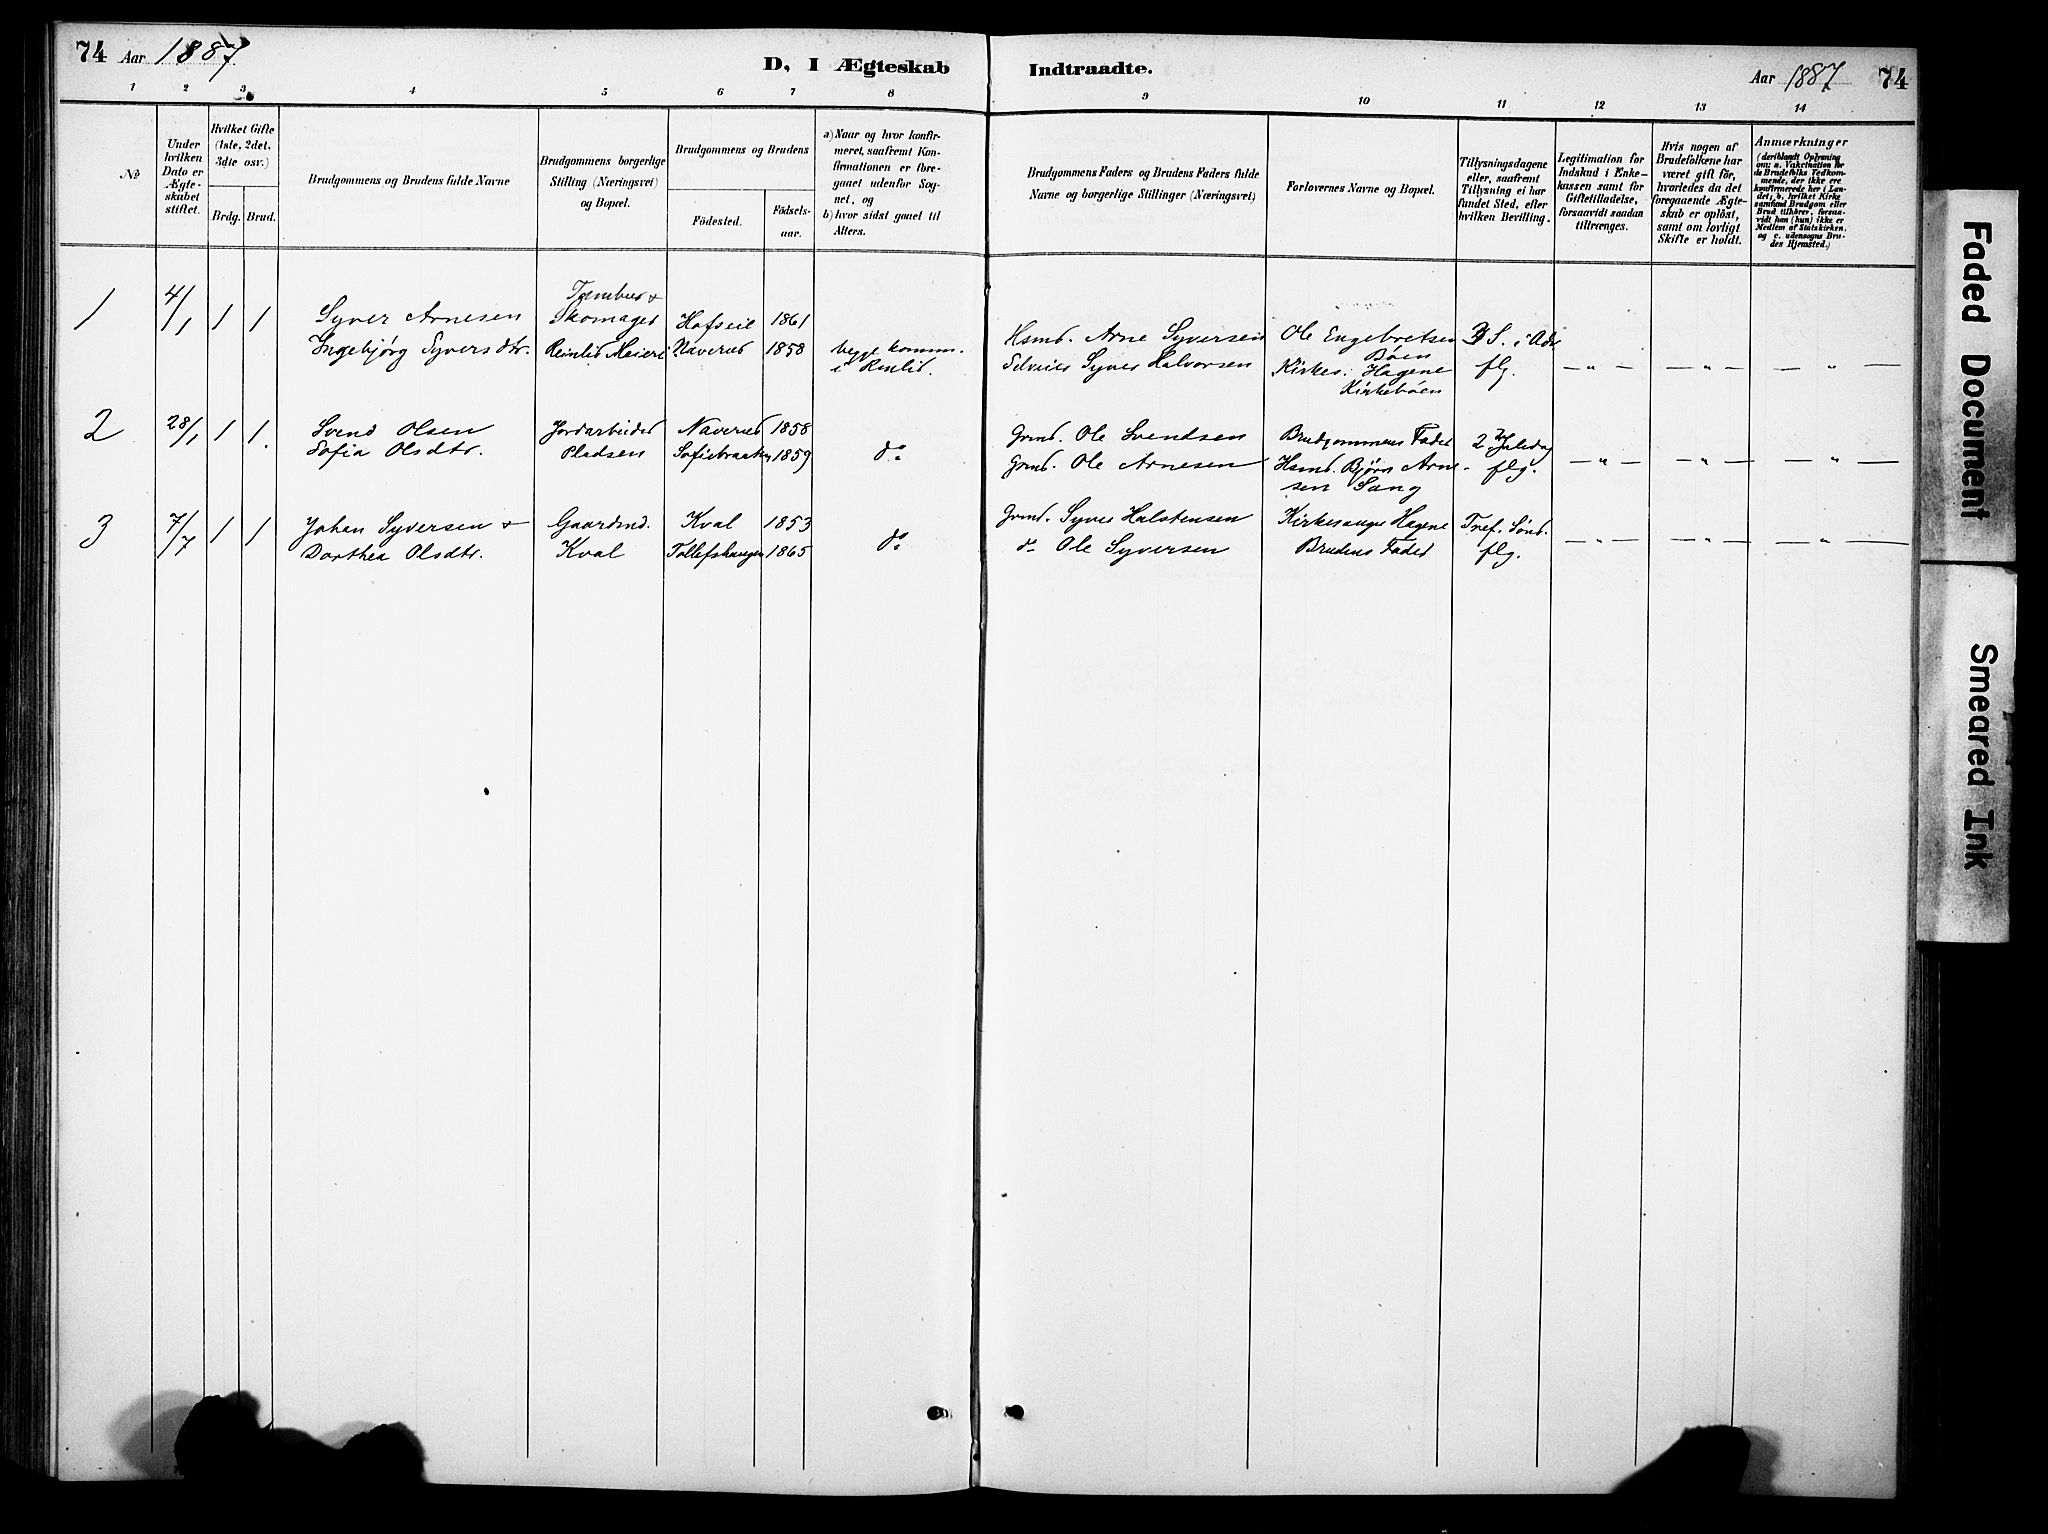 74 Aar 1887
D, I Ægteskab Indtraadte.
Aar 1887 74
1 2 3 4 5 6 7 8 9 10 11 12 13 14
No
Under hvilken Dato er Ægteskabet stiftet.
Hvilket Gifte (1ste, 2det, 3dte osv.)
Brdg. Brud.
Brudgommens og Brudens fulde Navne
Brudgommens borgerlige Stilling (Næringsvei) og Bopæl.
Brudgommens og Brudens
Födested.
Födsels-aar.
a) Naar og hvor konfirmeret, saafremt Konfirmationen er foregaaet udenfor Sognet, og
b) hvor sidst gaaet til Alters.
Brudgommens Faders og Brudens Faders fulde Navne og borgerlige Stillinger (Næringsvei)
Forlovernes Navne og Bopæl.
Tillysningsdagene eller, saafremt Tillysning ei har fundet Sted, efter hvilken Bevilling.
Legitimation for Indskud i Enkekassen samt for Giftetilladelse, forsaavidt saadan tiltrænges.
Hvis nogen af Brudefolkene har været gift för, hvorledes da det foregaaende Ægteskab er oplöst, samt om lovligt Skifte er holdt.
Anmærkninger
(deriblandt Oplysning om: a. Vakcination for de Brudefolks Vedkommende, der ikke ere konfirmerede her i Landet; b. hvilket Kirkesamfund Brudgom eller Brud tilhörer, forsaavidt han (hun) ikke er Medlem af Statskirken, og c. udensogns Brudes Hjemsted.)
1 4/1 1 1 Syver Arnesen Skomager Hofseie 1861 Hsmd. Arne Syversen Ole Engebretsen Bøen 3 S. i Adv.
Ingebjørg Syversdtr. Reinlid Meieri Naverud 1858 begge komm. i Reinlid. Syver Halvorsen Kirkes. Hagene Kirkebøen flg. — " — — " — — " —
2 28/1 1 1 Svend Olsen Jordarbeider Naverud 1858 Grmd. Ole Svendsen Brudgommens Fader 2 Juledag
Sofia Olsdtr. Pladsen Sofiebraaten 1859 do Grmd. Ole Arnesen Hsmd. Bjørn Arnesen Sang flg. — " — — " — — " —
3 7/7 1 1 Johan Syversen & Gaardmd. Kval 1853 Grmd. Syver Halstensen Kirkesanger Hagene Tref. Sønd.
Dorthea Olsdtr. Kval Tollefshaugen 1865 do do Ole Syversen Brudens Fader flg. — " — — " — — " —
Faded Document
Smeared Ink